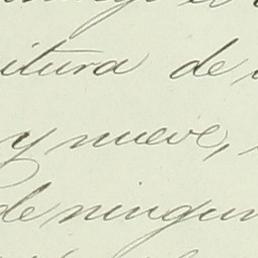 itura de
y nueve,
de ningun